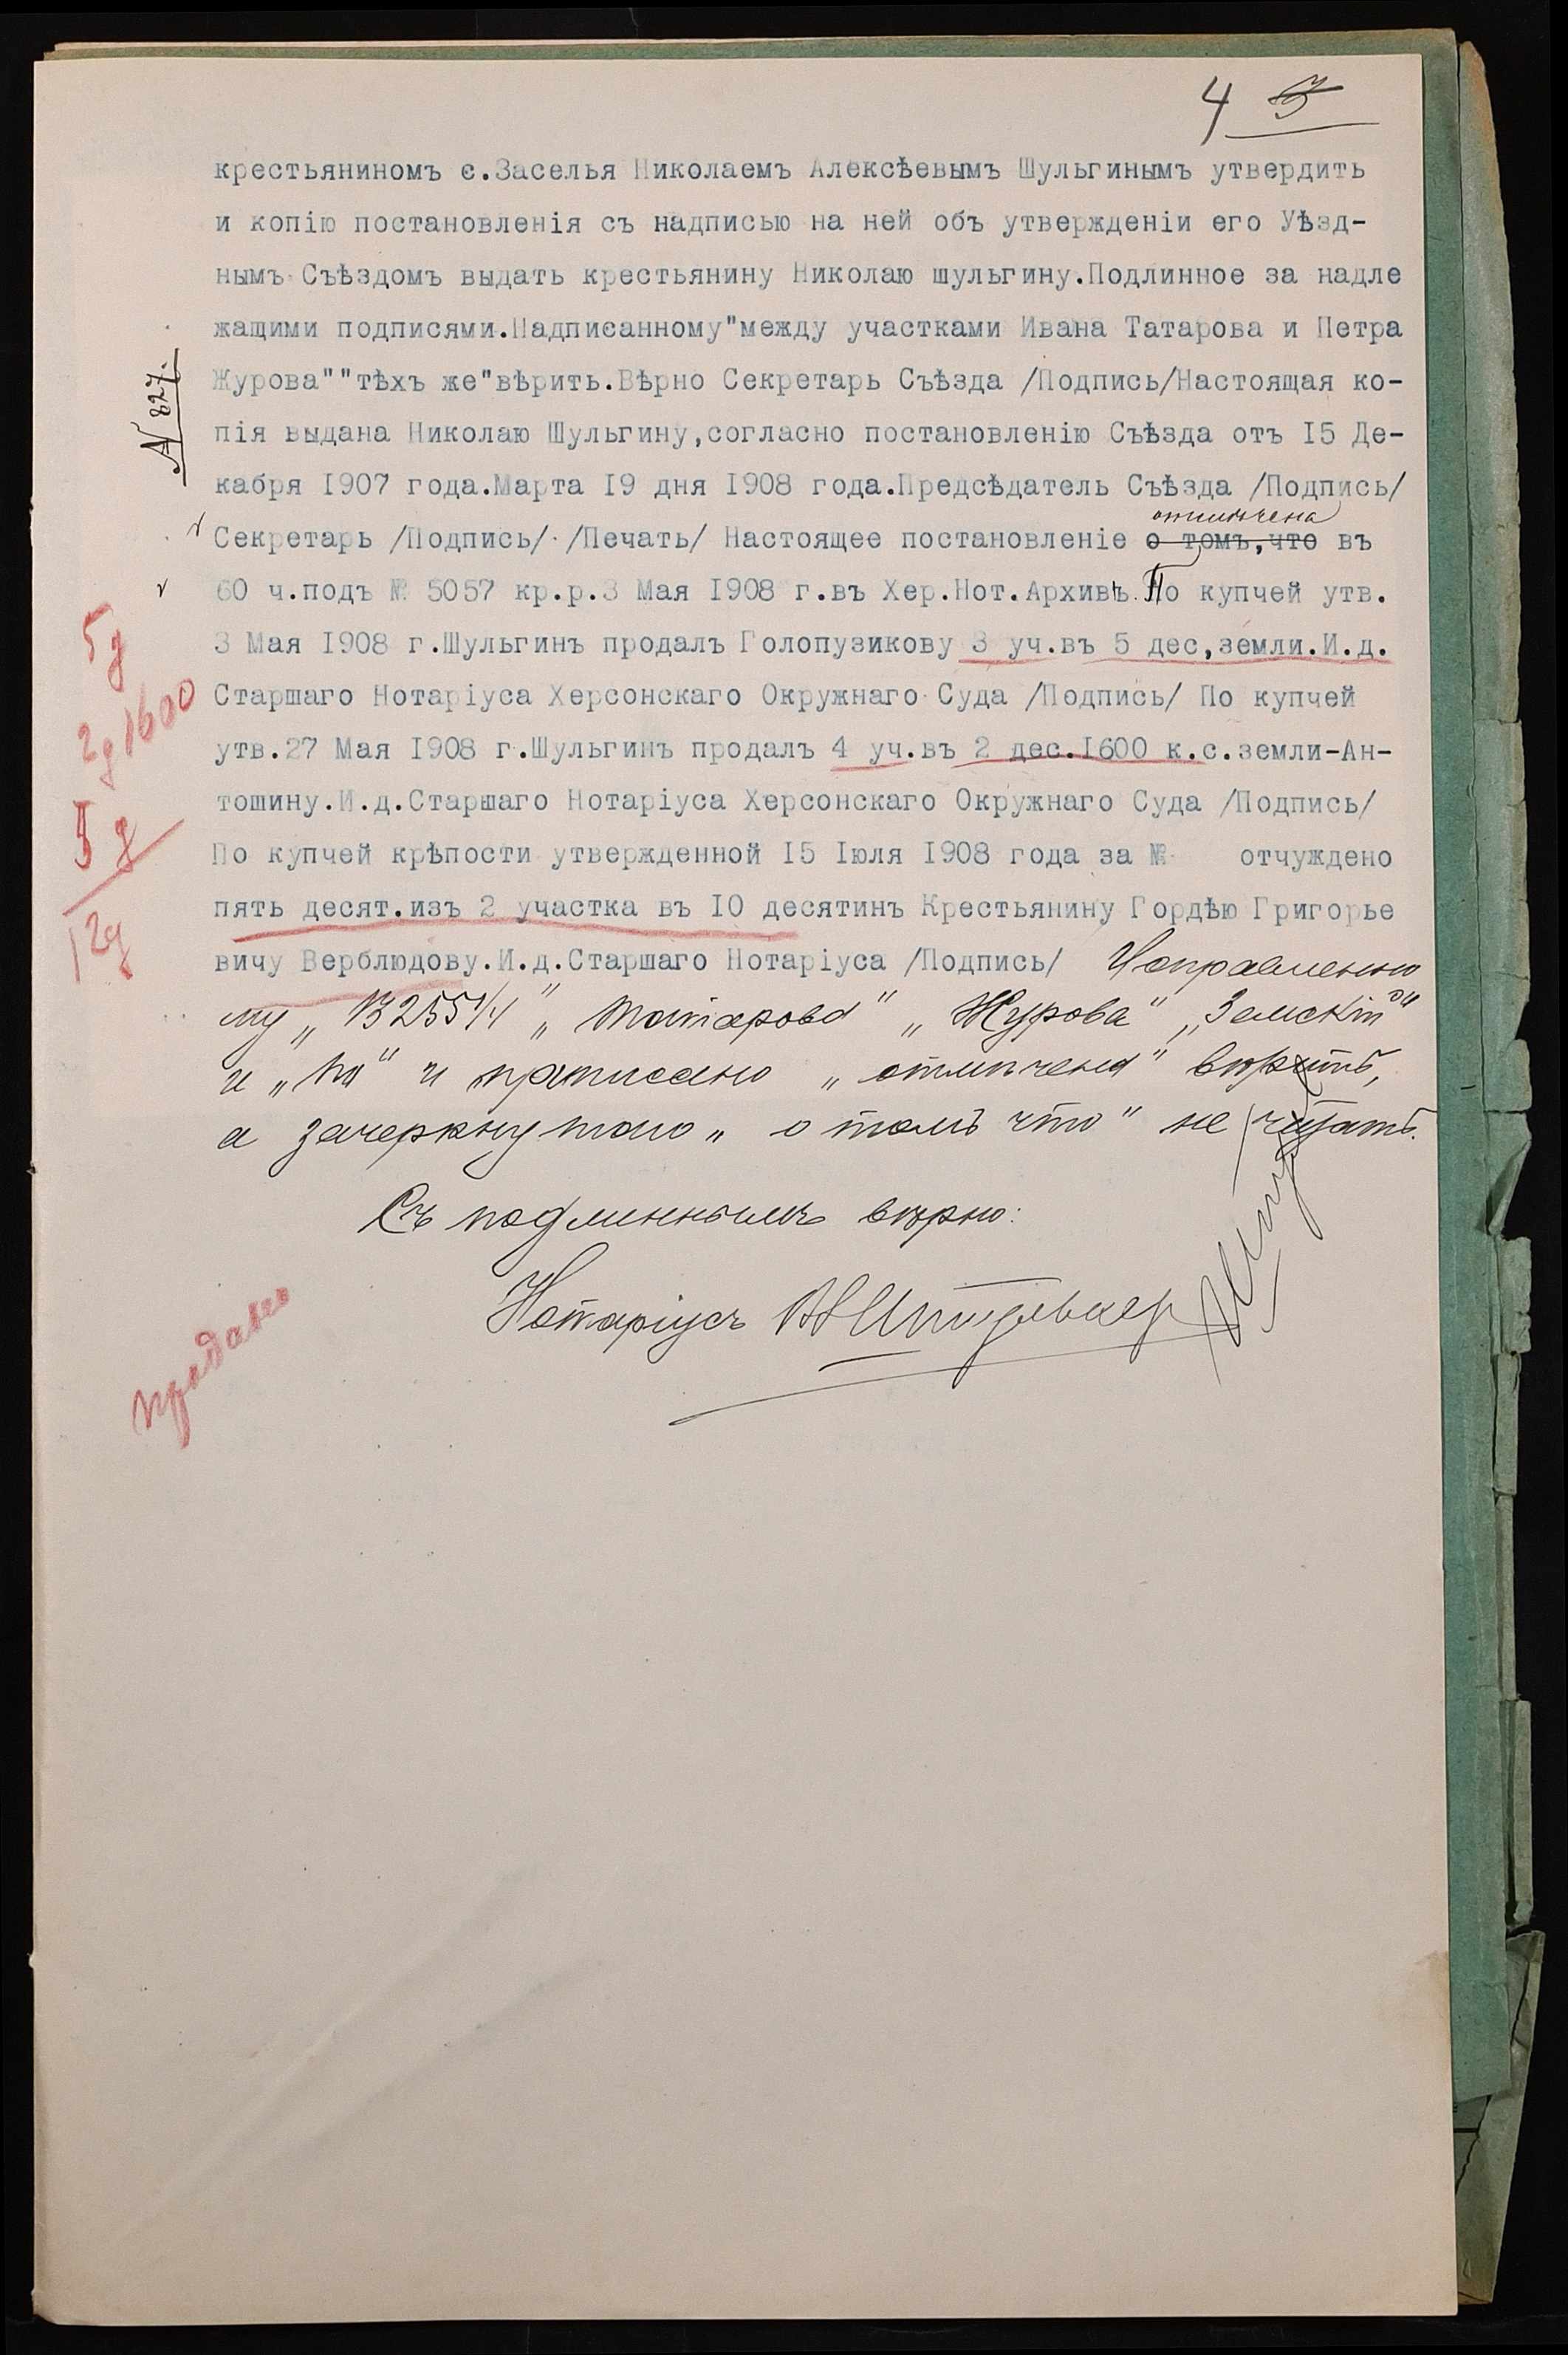 4 5
крестьяниномъ с.Заселья Николаемъ Алексѣевымъ Шульгинымъ утвердить
и копію постановленія съ надписью на ней объ утвержденіи его Уѣзд-
нымъ Съѣздомъ выдать крестьянину Николаю шульгину.Подлинное за надле
жащими подписями.Надписанному"между участками Ивана Татарова и Петра
Журова""тѣхъ же"вѣрить.Вѣрно Секретарь Съѣзда /Подпись/Настоящая ко-
N 827.
пія выдана Николаю Шульгину,согласно постановленію Съѣзда отъ I5 Де-
кабря I907 года.Марта I9 дня I908 года.Предсѣдатель Съѣзда /Подпись/
отмѣчена
Секретарь /Подпись/ /Печать/ Настоящее постановленіе о томъ,что въ
60 ч.подъ № 5057 кр.р.3 Мая I908 г.въ Хер.Нот.Архивѣ.По купчей утв.
5д
3 Мая I908 г.Шульгинъ продалъ Голопузикову 3 уч.въ 5 дес,земли.И.д.
2д 1600
Старшаго Нотаріуса Херсонскаго Окружнаго Суда /Подпись/ По купчей
утв.27 Мая I908 г.Шульгинъ продалъ 4 уч.въ 2 дес.I600 к.с.земли-Ан-
5 д
тошину.И.д.Старшаго Нотаріуса Херсонскаго Окружнаго Суда /Подпись/
По купчей крѣпости утвержденной I5 Іюля I908 года за № отчуждено
12д
пять десят.изъ 2 участка въ I0 десятинъ Крестьянину Гордѣю Григорье
вичу Верблюдову.И.д.Старшаго Нотаріуса /Подпись/ Исправленно
му „ „Татарова" „Журова" „Земскій"
и „По" и приписано „отмѣчена" вѣрить,
а зачеркнутаго „о томъ что" не читать.
Съ подлиннымъ вѣрно:
Нотаріусъ
продано